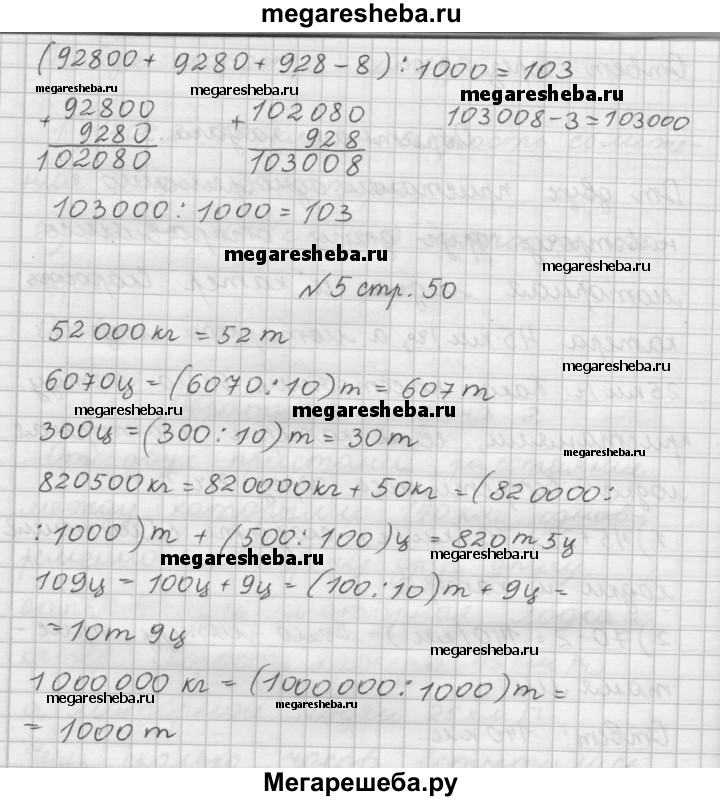 megaresheba.ru
(92800 + 9280 + 928 - 8) : 1000 = 103
megaresheba.ru megaresheba.ru megaresheba.ru
+ 92800 + 102080 103008 - 3 = 103000
9280 928
102080 103008
103000 : 1000 = 103
megaresheba.ru megaresheba.ru
№5 стр. 50
52000 кг = 52 т
megaresheba.ru
6070ц = (6070:10)т = 607т
megaresheba.ru megaresheba.ru
300ц = (300:10)т = 30т
megaresheba.ru
820500кг = 820000кг + 50кг = (820000:
:1000)т + (500:100)ц = 820т 5ц
megaresheba.ru megaresheba.ru
109ц = 100ц + 9ц = (100:10)т + 9ц =
= 10т 9ц
megaresheba.ru
1000000 кг = (1000000:1000)т =
megaresheba.ru megaresheba.ru
= 1000 т
megaresheba.ru
Мегарешеба.ру